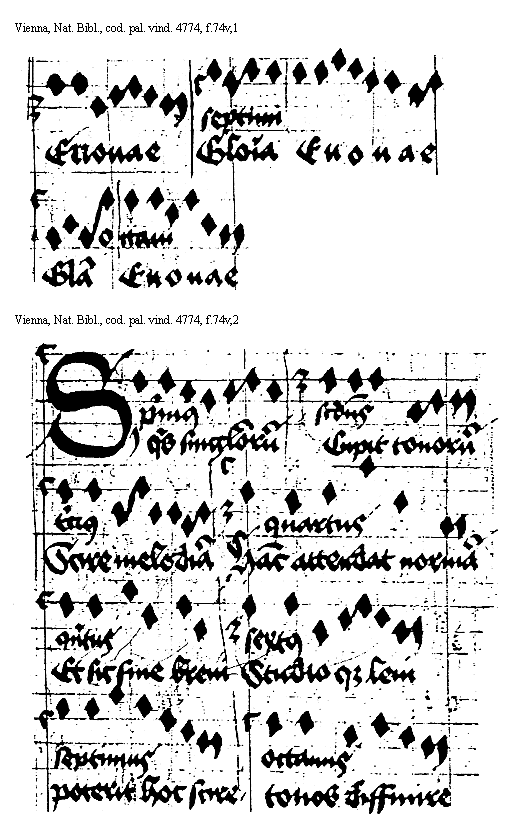 Vienna, Nat. Bibl., cod. pal. vind. 4774, f.74v,1
septimi
Euouae Gloīa E u o u a e
octaui
Glā Euouae
Vienna, Nat. Bibl., cod. pal. vind. 4774, f.74v,2
S pͥmus scdūs
qͥs singlōrū Cupit tonorū
tͥciꝰ quartus
Scire melodiā Hāc attendat normā
qͥntus sextꝰ
Et sic fine breui Studio qꝫ leui
septimus octauus
poterit hoc scire tonos diffinire